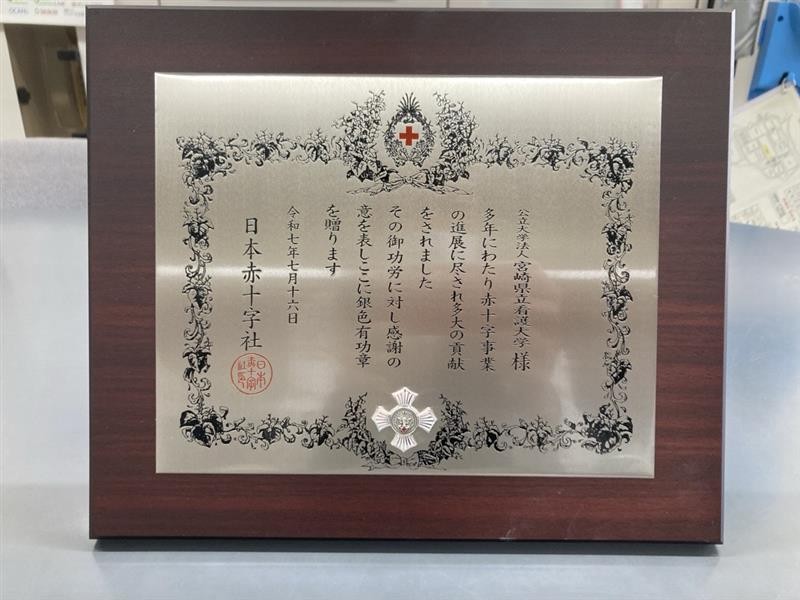 公立大学法人 宮崎県立看護大学 様
多年にわたり赤十字事業
の進展に尽され多大の貢献
をされました
その御功労に対し感謝の
意を表しここに銀色有功章
を贈ります
令和七年七月十六日
日本赤十字社